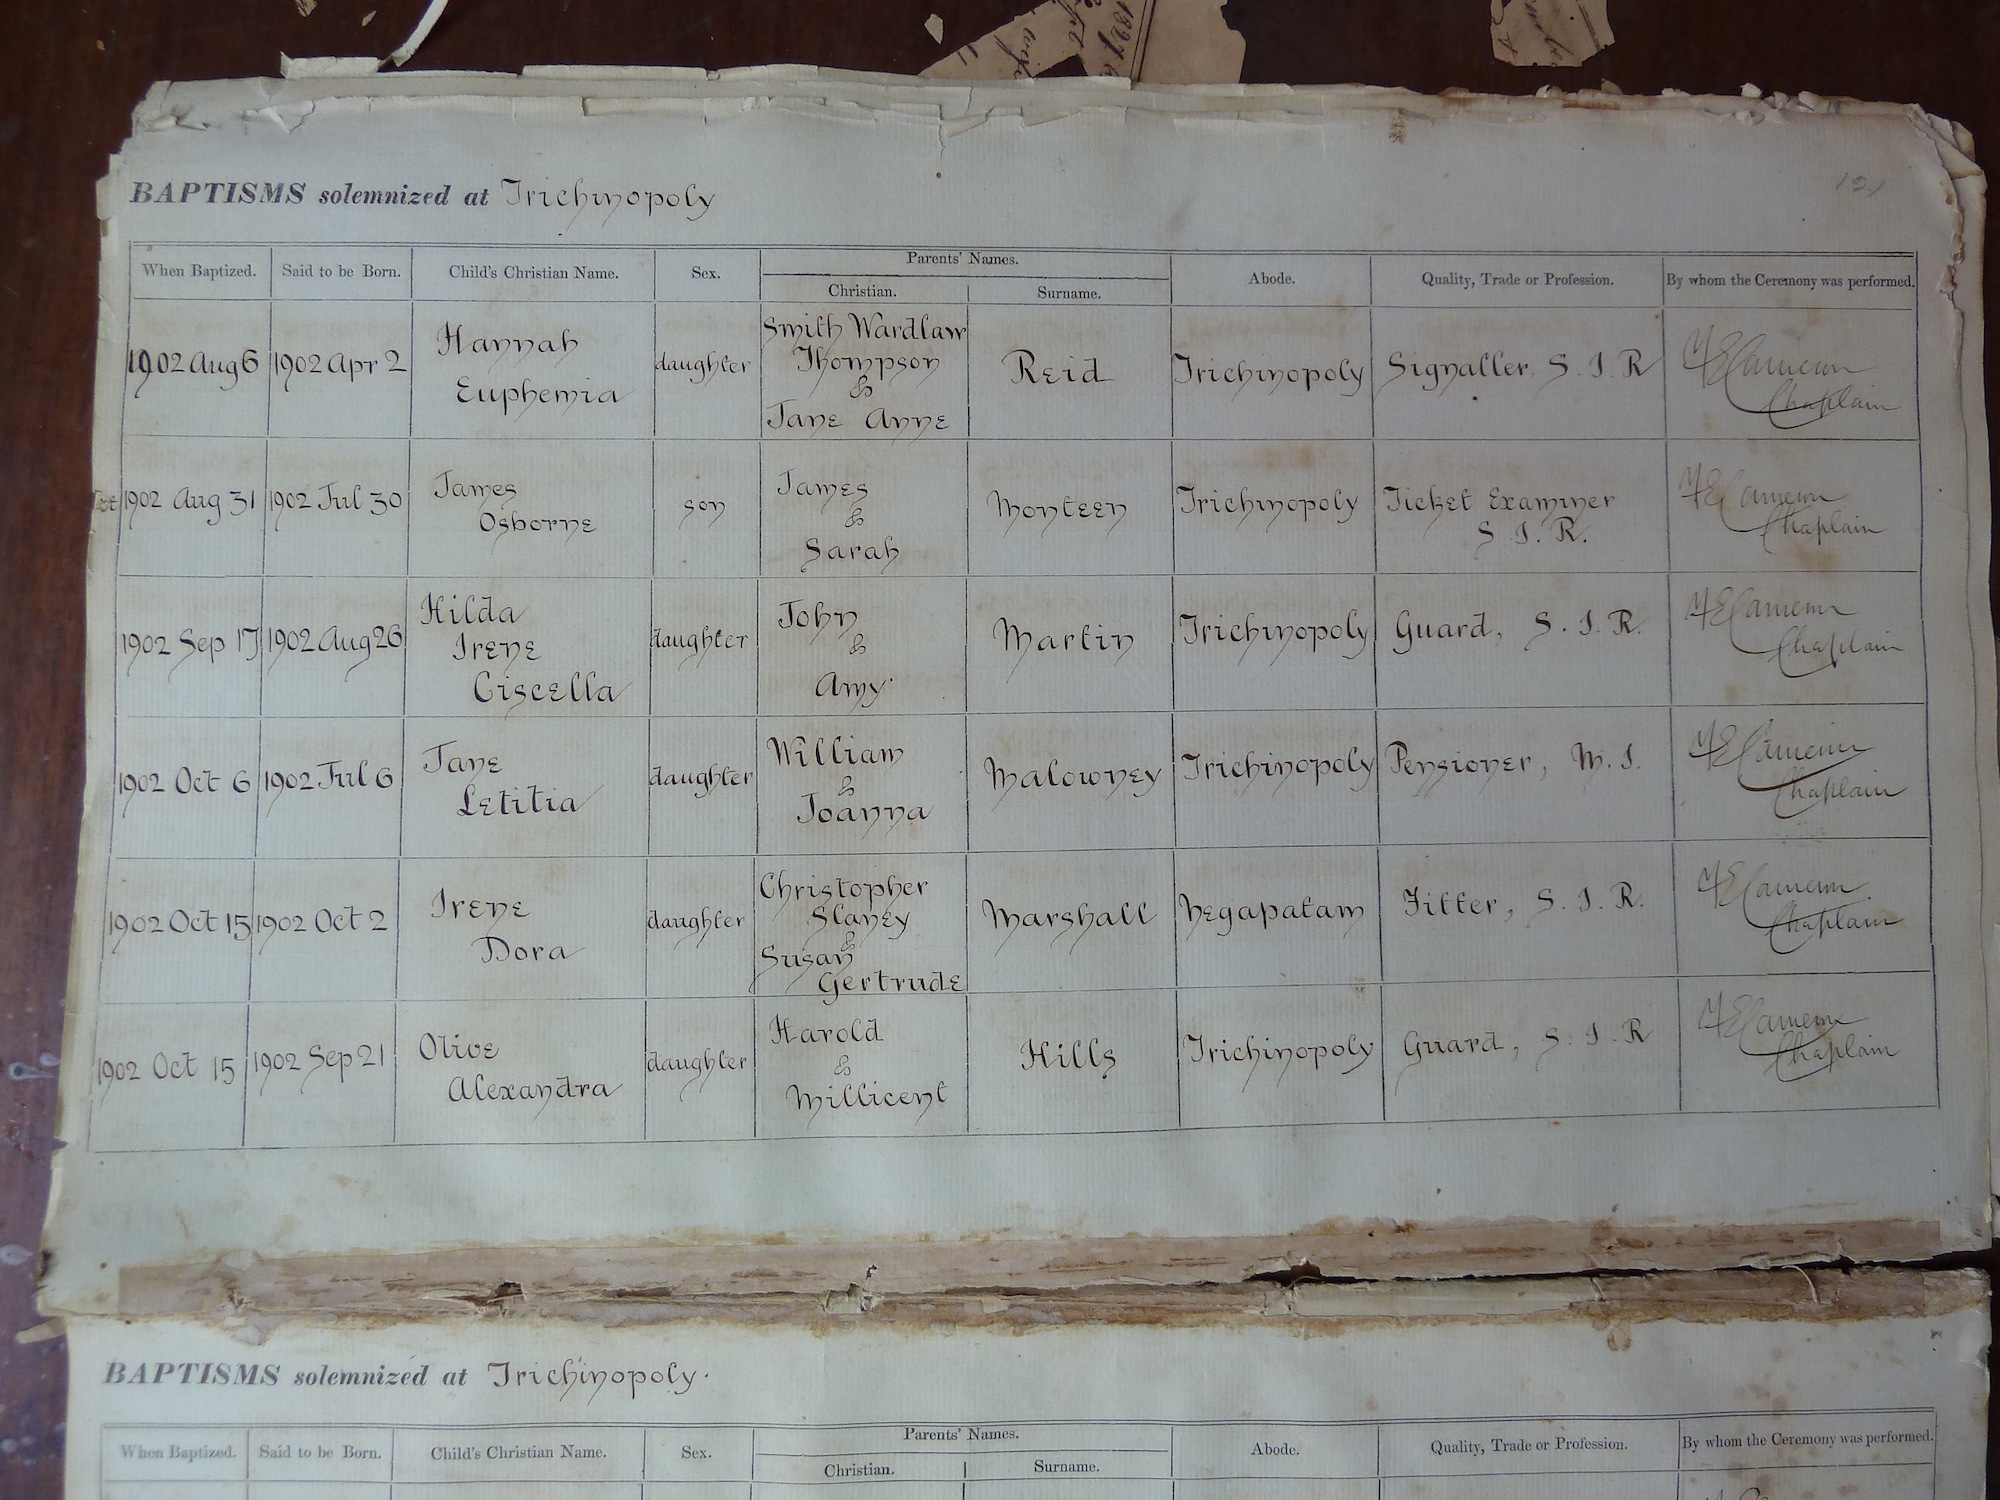 BAPTISMS solemnized at Trichinopoly
When Baptized. Said to be Born. Child's Christian Name. Sex. Parents' Names. Abode. Quality, Trade or Profession. By whom the Ceremony was performed.
Christian. Surname.
1902 Aug 6 1902 Apr 2 Hannah Euphemia daughter Smith Wardlaw Thompson & Jane Anne Reid Trichinopoly Signaller, S. I. R Cameron Chaplain
1902 Aug 31 1902 Jul 30 James Osborne son James & Sarah Monteen Trichinopoly Ticket Examiner S I. R. Cameron Chaplain
1902 Sep 17 1902 Aug 26 Hilda Irene Giscella daughter John & Amy Martin Trichinopoly Guard, S. I. R. Cameron Chaplain
1902 Oct 6 1902 Jul 6 Jane Letitia daughter William & Joanna Malowney Trichinopoly Pensioner, M. I. Cameron Chaplain
1902 Oct 15 1902 Oct 2 Irene Dora daughter Christopher Slaney & Susan Gertrude Marshall Negapatam Fitter, S. I. R. Cameron Chaplain
1902 Oct 15 1902 Sep 21 Olive Alexandra daughter Harold & Millicent Hills Trichinopoly Guard, S. I. R Cameron Chaplain
BAPTISMS solemnized at Trichinopoly.
When Baptized. Said to be Born. Child's Christian Name. Sex. Parents' Names. Abode. Quality, Trade or Profession. By whom the Ceremony was performed.
Christian. Surname.